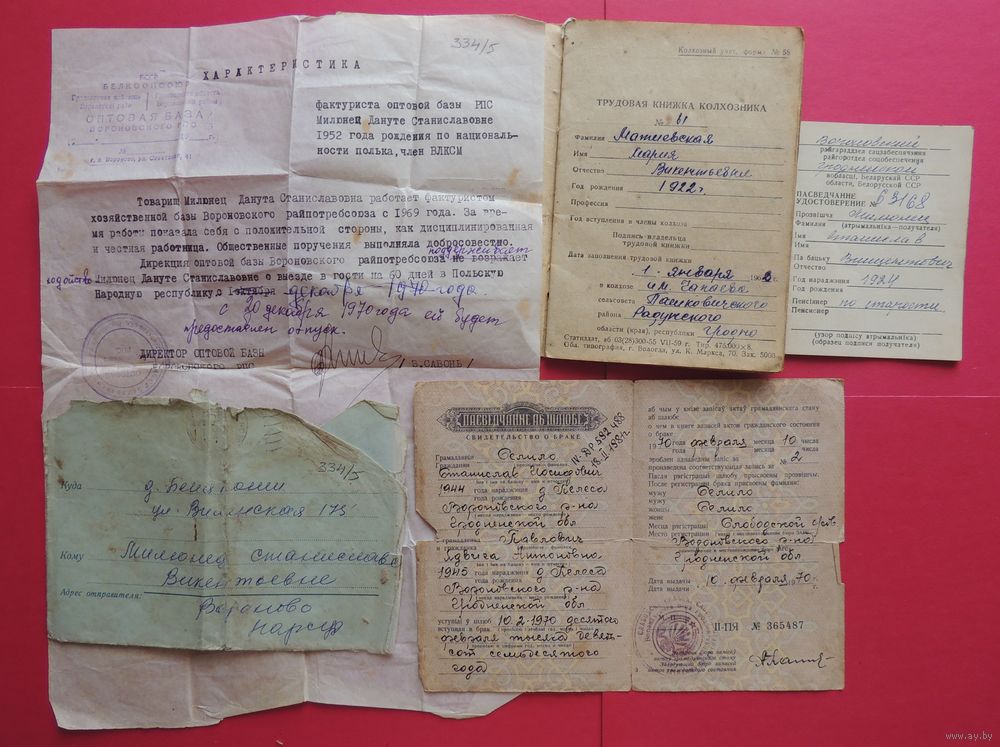 334/5
ХАРАКТЕРИСТИКА
БССР
БЕЛКООПСОЮЗ
ОПТОВАЯ БАЗА
ВОРОНОВСКОГО РПС
фактуриста оптовой базы РПС
Милонец Дануте Станиславовне
1952 года рождения по националь-
ности полька, член ВЛКСМ
Товарищ Милюнец Данута Станиславовна работает фактуристом
хозяйственной базы Вороновского райпотребсоюза с 1969 года. За вре-
мя работы показала себя с положительной стороны, как дисциплинированная
и честная работница. Общественные поручения выполняла добросовестно.
Дирекция оптовой базы Вороновского райпотребсоюза не возражает
Милонец Дануте Станиславовне о выезде в гости на 60 дней в Польскую
Народную республику. с 1 октября декабря 1970 года.
с 20 декабря 1970 года ей будет
предоставлен отпуск.
ДИРЕКТОР ОПТОВОЙ БАЗЫ
ВОРОНОВСКОГО РПС
/В.САВОНЬ/
Колхозный учет, форма № 55
ТРУДОВАЯ КНИЖКА КОЛХОЗНИКА
№ 61
Фамилия Мацкевская
Имя Мария
Отчество Викентьевна
Год рождения 1922 г.
Профессия
Год вступления в члены колхоза
Подпись владельца
трудовой книжки
Дата заполнения трудовой книжки
1. января 196
в колхозе им. Чапаева
сельсовета Пашковичского
района Радунского
области (края), республики Гродно
Статиздат, аб 03(28)300-55 VII-59 г. Тир. 475.000×8.
Обл. типография, г. Вологда, ул. К. Маркса, 70. Зак. 5003
Вороновский
райгараддзел сацзабеспячэння
райгоротдел соцобеспечения
Гродненской
вобласці, Беларускай ССР
области, Белорусской ССР
ПАСВЕДЧАННЕ
УДОСТОВЕРЕНИЕ № 83168
Прозвішча Милонец
Фамилия (атрымальніка—получателя)
Імя Станислав
Имя
Па бацьку Викентович
Отчество
Год нараджэння 1924
Год рождения
Пенсіянер по старости
Пенсионер
(узор подпісу атрымальніка)
(образец подписи получателя)
334/5
Куда д. Бенякони
ул. Виленская 175
Кому Милонец Станиславе
Викентьевне
Адрес отправителя: Вороново
нарсуд
ПАСВЕДЧАННЕ АБ ШЛЮБЕ
СВИДЕТЕЛЬСТВО О БРАКЕ
Грамадзянін Селило
Гражданин
Станислав Иосифович
1944 года нараджэння д. Пелеса
года рождения
Вороновского р-на
Гродненской обл
і грамадзянка Павлович
и гражданка
Ядвига Антоновна
1945 года нараджэння д. Пелеса
года рождения
Вороновского р-на
Гродненской обл
уступілі ў шлюб 10.2-1970 десятого
вступили в брак
февраля тысяча девять-
сот семьдесятого
года
аб чым у кнізе запісаў актаў грамадзянскага стану
аб шлюбе
о чем в книге записей актов гражданского состояния
о браке
1970 года февраля месяца 10 числа
зроблен адпаведны запіс за № 2
произведена соответствующая запись за
Пасля рэгістрацыі шлюбу прысвоены прозвішчы:
После регистрации брака присвоены фамилии:
мужу Селило
мужу
жонцы Селило
жене
Месца рэгістрации Слободской с/сов
Место регистрации
Вороновского р-на
Гродненской обл
Дата выдачы 10 февраля 1970 г.
Дата выдачи
II-ПЯ № 365487
www.ay.by